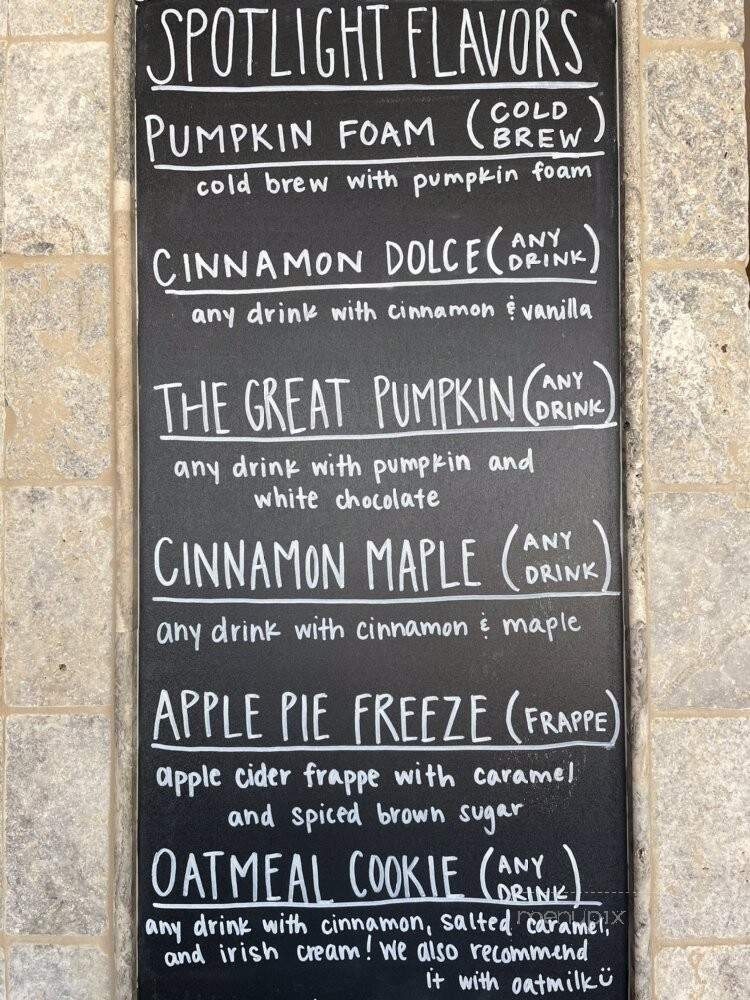 SPOTLIGHT FLAVORS
PUMPKIN FOAM (COLD BREW)
cold brew with pumpkin foam
CINNAMON DOLCE (ANY DRINK)
any drink with cinnamon & vanilla
THE GREAT PUMPKIN (ANY DRINK)
any drink with pumpkin and
white chocolate
CINNAMON MAPLE (ANY DRINK)
any drink with cinnamon & maple
APPLE PIE FREEZE (FRAPPE)
apple cider frappe with caramel
and spiced brown sugar
OATMEAL COOKIE (ANY DRINK)
menupix
any drink with cinnamon, salted caramel,
and irish cream! We also recommend
it with oatmilk ü